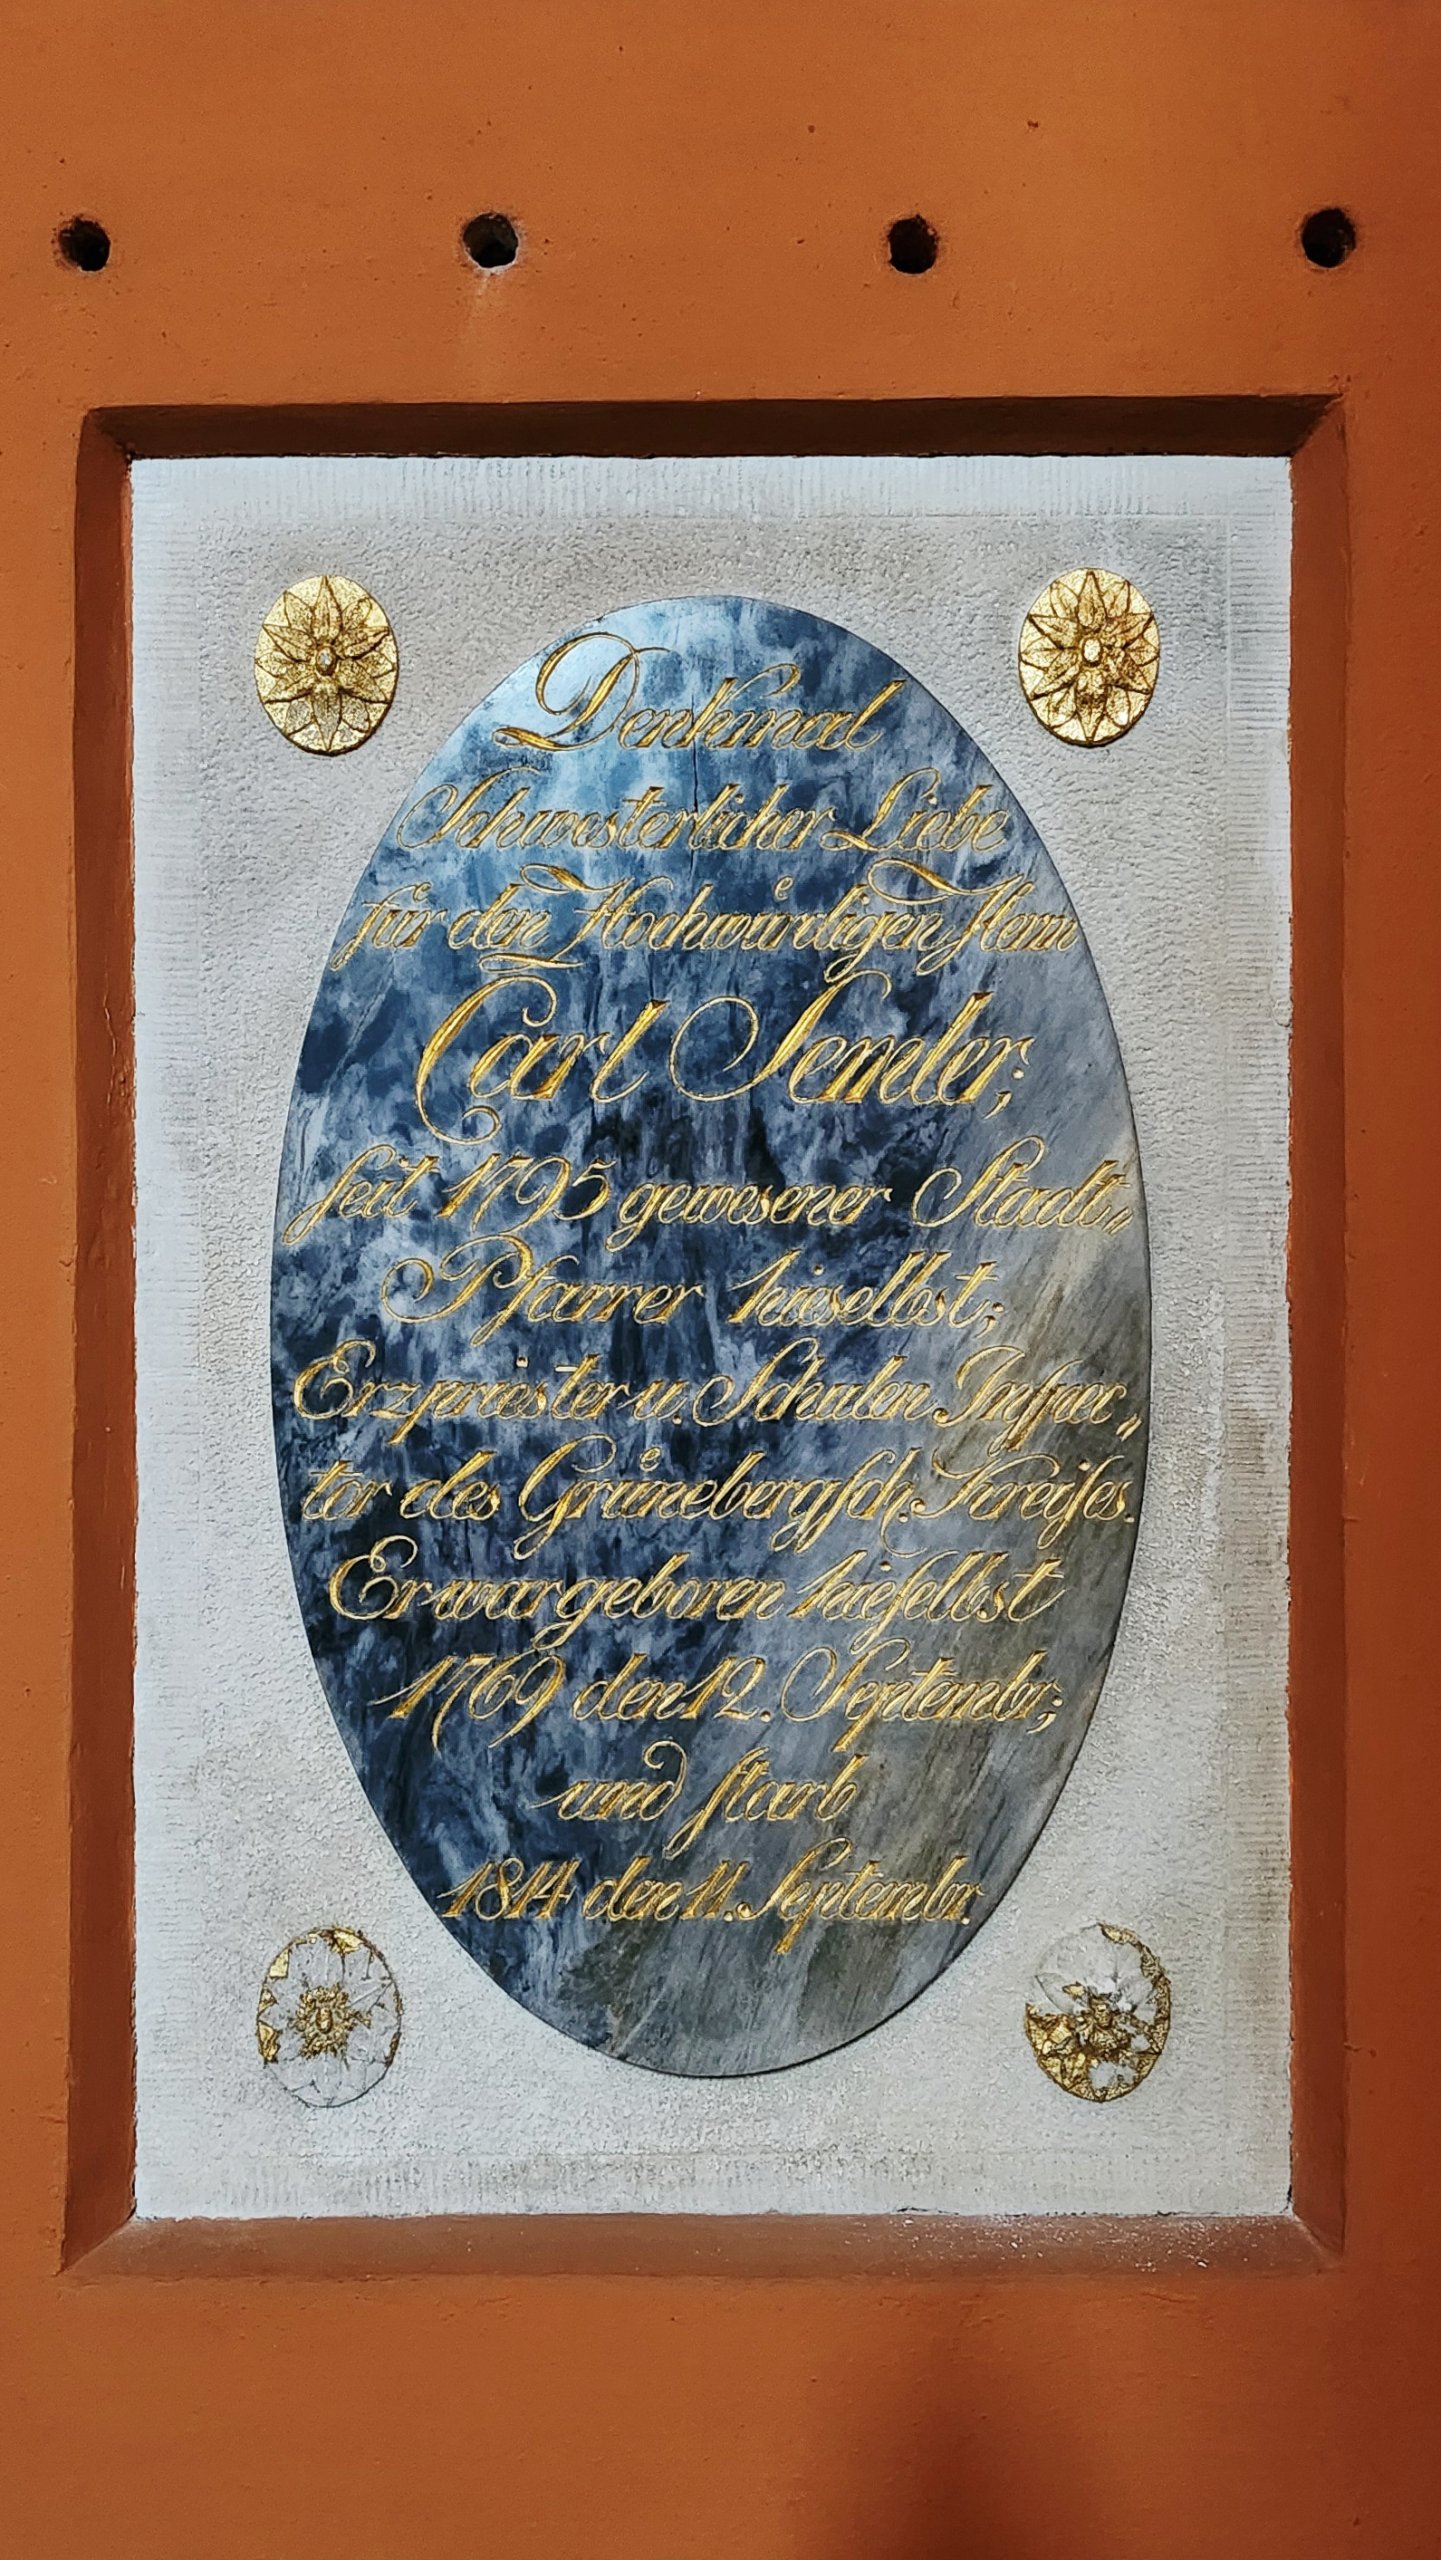 Denkmal
Schwesterlicher Liebe
für den Hochwürdigen Herrn
Carl Sender;
ſeit 1795 gewesener Stadt„
Pfarrer hieselbst;
Erzpriester u. Schulen Inſpec„
tor des Grünebergſch. Kreiſes.
Er war geboren hieſelbst
1769 den 12. Septembr;
und ſtarb
1814 den 11. Septembr.